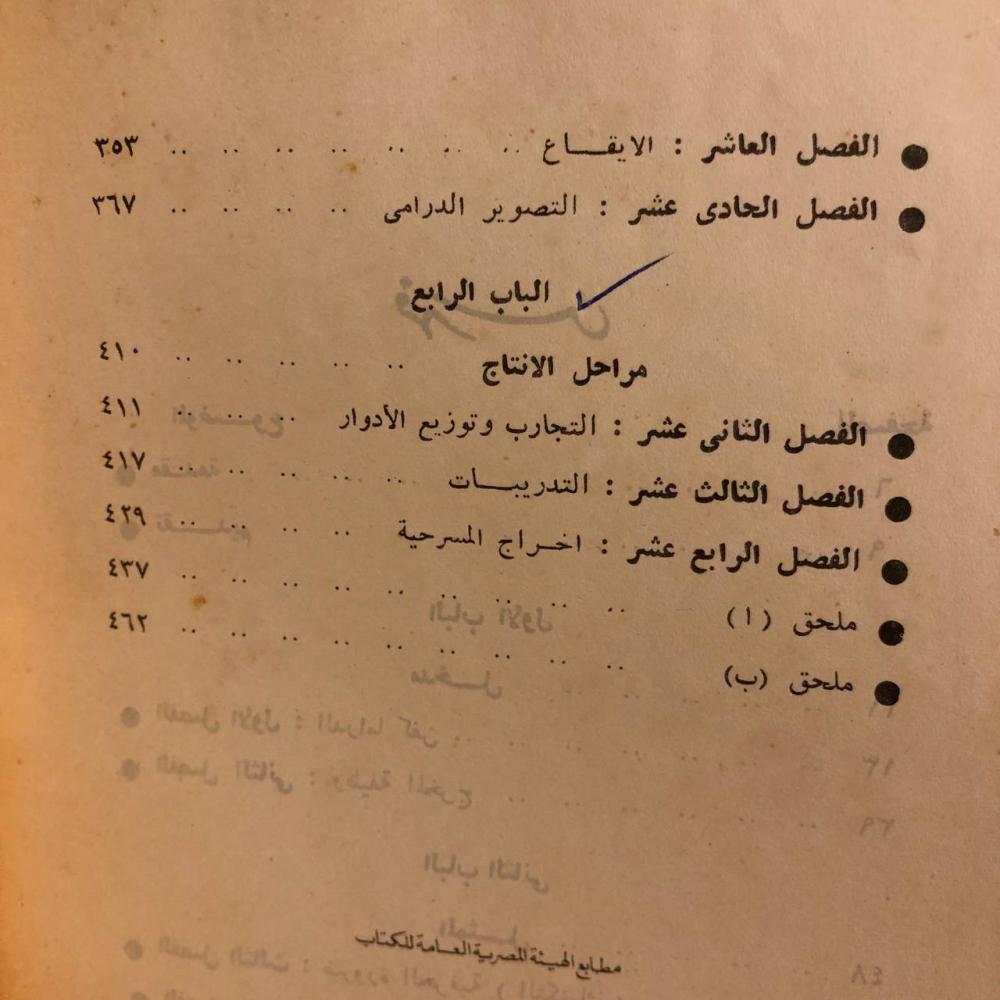 الفصل العاشر : الايقـــاع .. .. .. .. .. .. .. ٣٥٣
الفصل الحادى عشر : التصوير الدرامى .. .. .. .. ٣٦٧
الباب الرابع
مراحل الانتاج .. .. .. .. .. ٤١٠
الفصل الثانى عشر : التجارب وتوزيع الأدوار .. .. .. ٤١١
الفصل الثالث عشر : التدريبـــات .. .. .. .. .. ٤١٧
الفصل الرابع عشر : اخــراج المسرحية .. .. .. .. ٤٢٩
ملحق (ا) .. .. .. .. .. .. .. .. .. ٤٣٧
ملحق (ب) .. .. .. .. .. .. .. .. .. ٤٦٢
مطابع الهيئة المصرية العامة للكتاب